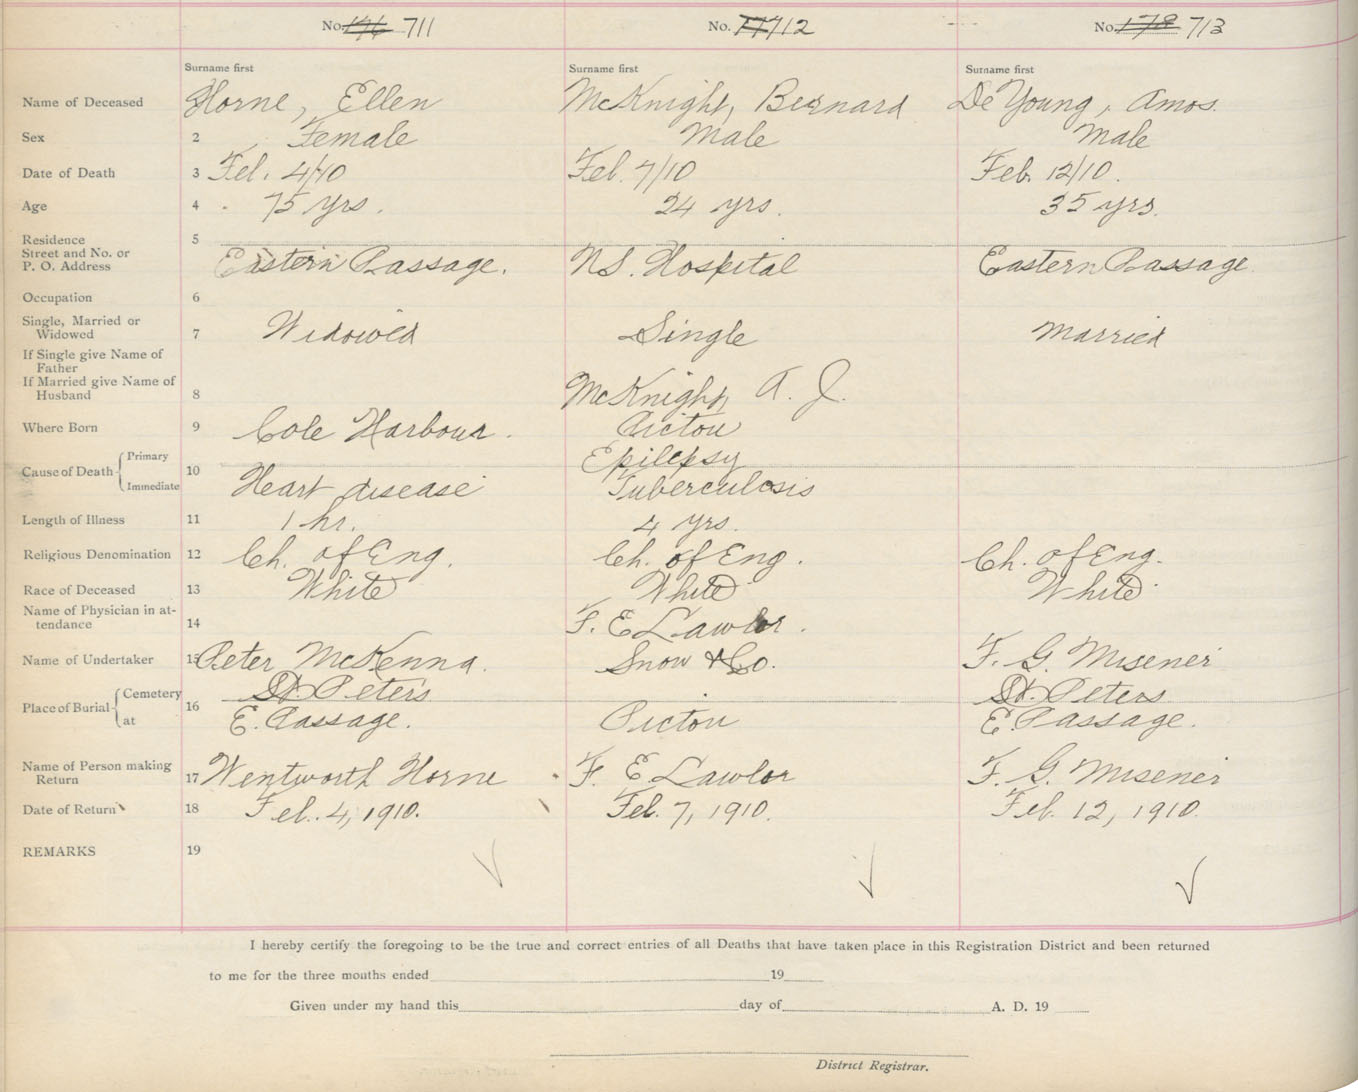 No. 176 711 No. 177 712 No. 178 713
Surname first Surname first Surname first
Name of Deceased Horne, Ellen McKnight, Bernard De Young, Amos.
Sex 2 Female Male Male
Date of Death 3 Feb. 4/10 Feb. 7/10 Feb. 12/10.
Age 4 75 yrs. 24 yrs. 35 yrs.
Residence 5
Street and No. or
P. O. Address Eastern Passage. N.S. Hospital Eastern Passage
Occupation 6
Single, Married or
Widowed 7 Widowed Single Married
If Single give Name of
Father
If Married give Name of
Husband 8 McKnight, A. J.
Where Born 9 Cole Harbour. Pictou
Cause of Death Primary Epilepsy
10
Immediate Heart disease Tuberculosis
Length of Illness 11 1 hr. 4 yrs.
Religious Denomination 12 Ch. of Eng. Ch. of Eng. Ch. of Eng.
Race of Deceased 13 White White White
Name of Physician in at-
tendance 14 F. E Lawlor.
Name of Undertaker 15 Peter McKenna. Snow & Co. F. G. Misener
Place of Burial Cemetery St. Peters St. Peters
16
at E. Passage. Pictou E. Passage.
Name of Person making
Return 17 Wentworth Horne F. E. Lawlor F. G. Misener
Date of Return 18 Feb. 4, 1910. Feb. 7, 1910. Feb. 12, 1910.
REMARKS 19
I hereby certify the foregoing to be the true and correct entries of all Deaths that have taken place in this Registration District and been returned
to me for the three months ended 19
Given under my hand this day of A. D. 19
District Registrar.